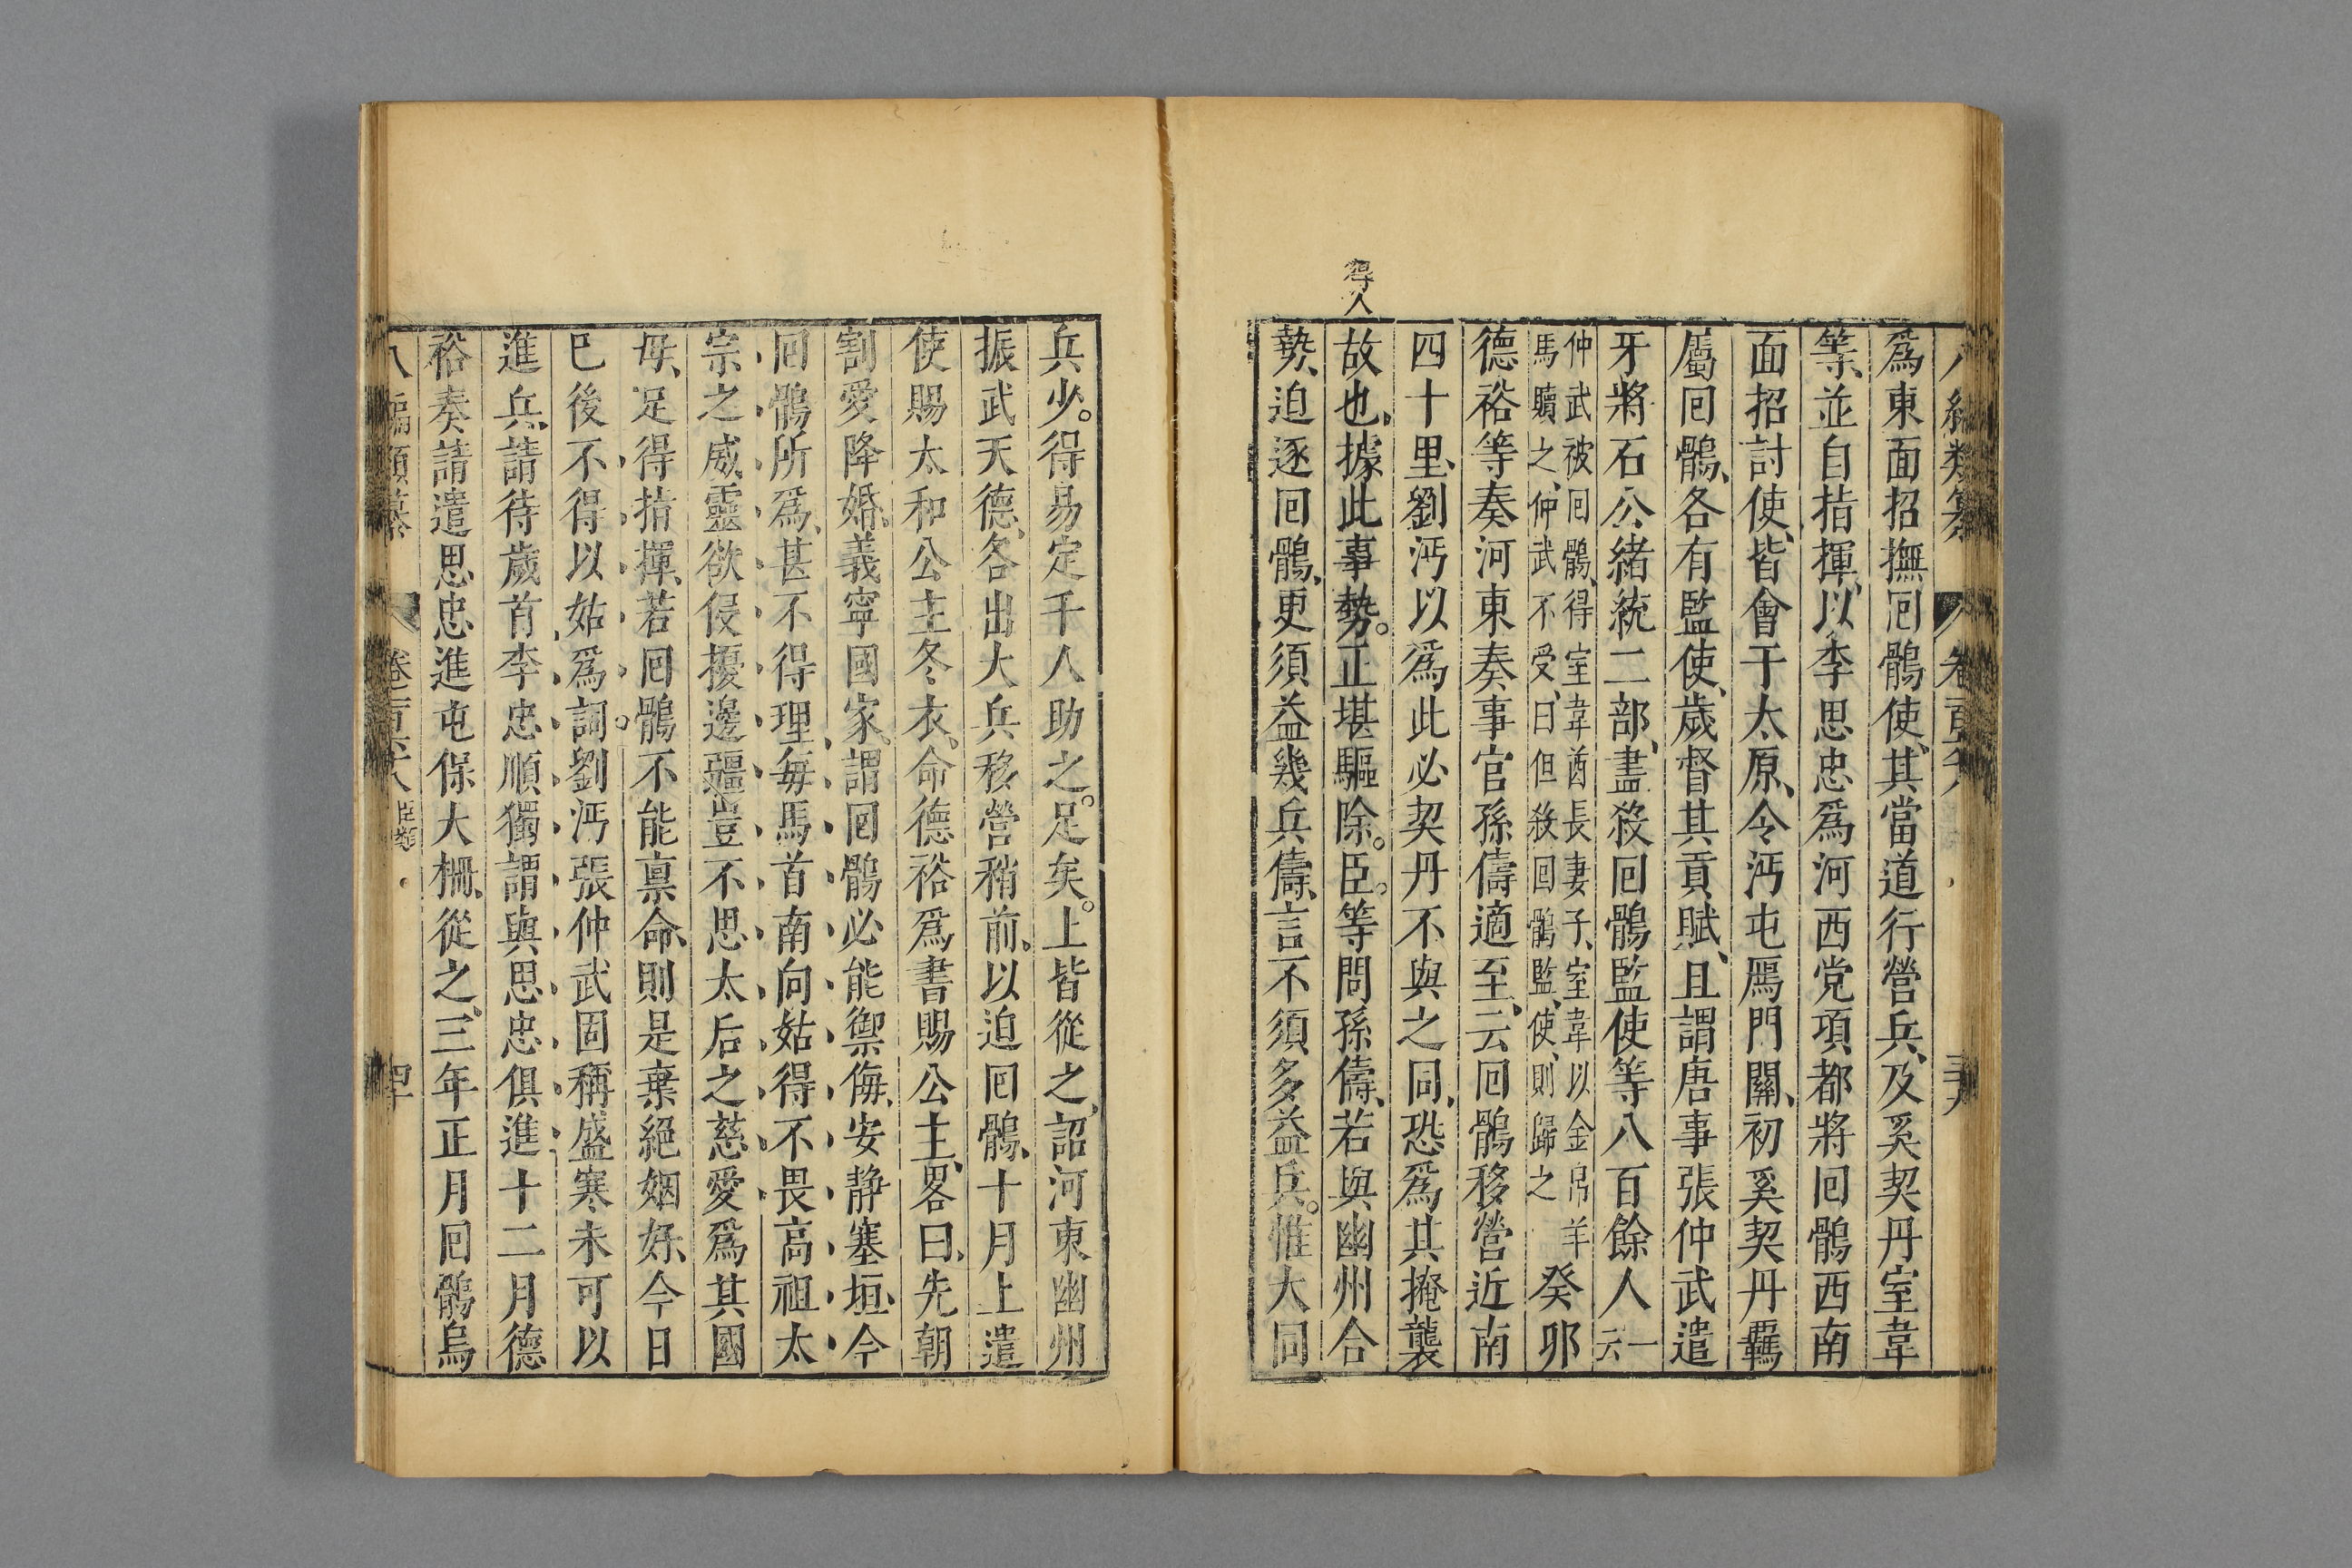 爲東面招撫囘鶻使、其當道行營兵、及奚契丹室韋
等、並自指揮、以李思忠爲河西党項都將回鶻西南
面招討使、皆會于太原、令沔屯鴈門關、初奚契丹羈
屬囘鶻、各有監使、歲督其貢賦、且謂唐事張仲武遣
牙將石公緒統二部、盡殺囘鶻監使等八百餘人一云
仲武被囘鶻、得室韋酋長妻子、室韋以金帛羊
馬贖之、仲武不受、曰但殺囘鶻監使、則歸之 癸卯
德裕等奏河東奏事官孫儔適至、云囘鶻移營近南
四十里、劉沔以爲此必契丹不與之同、恐爲其掩襲
得人
故也、據此事勢。正堪驅除。臣。等問孫儔、若與幽州合
勢、迫逐囘鶻、更須益幾兵、儔、言不須多益兵。惟大同
兵少。得易定千人助之。足矣。上皆從之、詔河東幽州
振武天德、各出大兵移營稍前、以迫囘鶻、十月上遣
使賜太和公主冬衣、命德裕爲書賜公主、畧曰、先朝
割愛降婚、義寧國家、謂囘鶻必能禦侮、安靜塞垣、今
囘鶻所爲、甚不得理、每馬首南向姑得不畏高祖太
宗之威靈欲侵擾邊疆豈不思太后之慈愛爲其國
母、足得指揮、若囘鶻不能禀命、則是棄絕姻好、今日
巳後不得以姑爲詞。劉沔張仲武固稱盛寒未可以
進兵、請待歲首李忠順獨謂與思忠俱進十二月德
裕奏請遣思忠進屯保大柵、從之。三年正月囘鶻烏
八編類纂 卷二百六八 臣類 四十